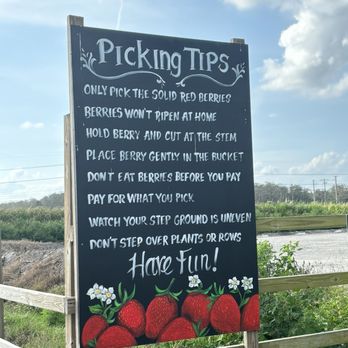 Picking Tips
ONLY PICK THE SOLID RED BERRIES
BERRIES WON'T RIPEN AT HOME
HOLD BERRY AND CUT AT THE STEM
PLACE BERRY GENTLY IN THE BUCKET
DON'T EAT BERRIES BEFORE YOU PAY
PAY FOR WHAT YOU PICK
WATCH YOUR STEP GROUND IS UNEVEN
DON'T STEP OVER PLANTS OR ROWS
Have Fun!